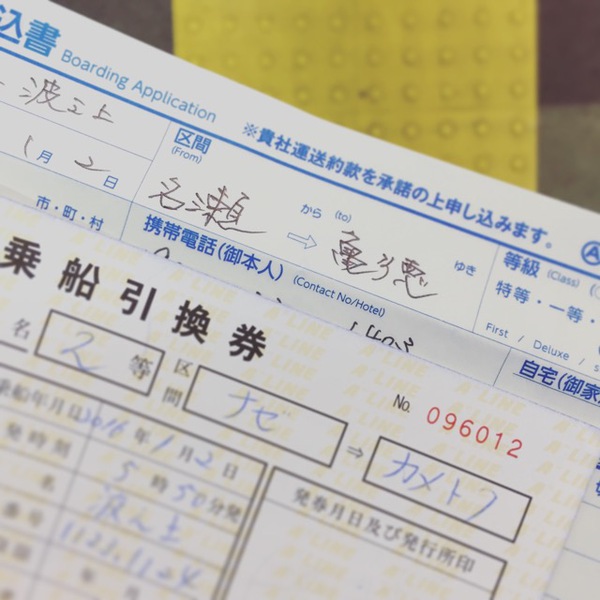 込書 Boarding Application
※貴社運送約款を承諾の上申し込みます。
波之上
1月2日
区間
(From)
名瀬 から (to) ⇨ 亀徳 ゆき
等級 (Class)
特等・一等・
First / Deluxe /
市・町・村
携帯電話(御本人) (Contact No/Hotel)
自宅(御家
乗船引換券
No. 096012
名 2等
区間 ナゼ ⇒ カメトク
乗船年月日 2016年1月2日
発時刻 5時50分発
名 波之上
番号 1123.1124
年 月
発券月日及び発行所印
A LINE